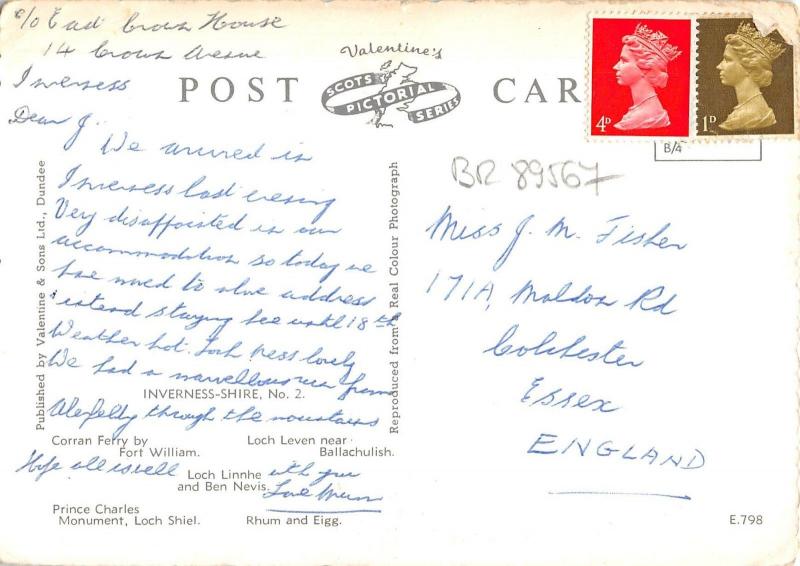 c/o East Crown House
14 Crown Avenue
Inverness
Valentine's
SCOTS PICTORIAL SERIES
POST CAR
4D
1D
B/4
BR 89567
Dear J.
We arrived in
Inverness last evening
Very disappointed in our
accommodation so today we
have moved to above address
intend staying here until 18th
Weather hot. Loch Ness lovely
We had a marvellous run from
Aberfeldy through the mountains
Hope all is well with you
Love Mum
Miss J. M. Fisher
171A, Maldon Rd
Colchester
Essex
ENGLAND
Published by Valentine & Sons Ltd., Dundee
Reproduced from a Real Colour Photograph
INVERNESS-SHIRE, No. 2.
Corran Ferry by
Fort William.
Loch Leven near
Ballachulish.
Loch Linnhe
and Ben Nevis.
Prince Charles
Monument, Loch Shiel.
Rhum and Eigg.
E.798